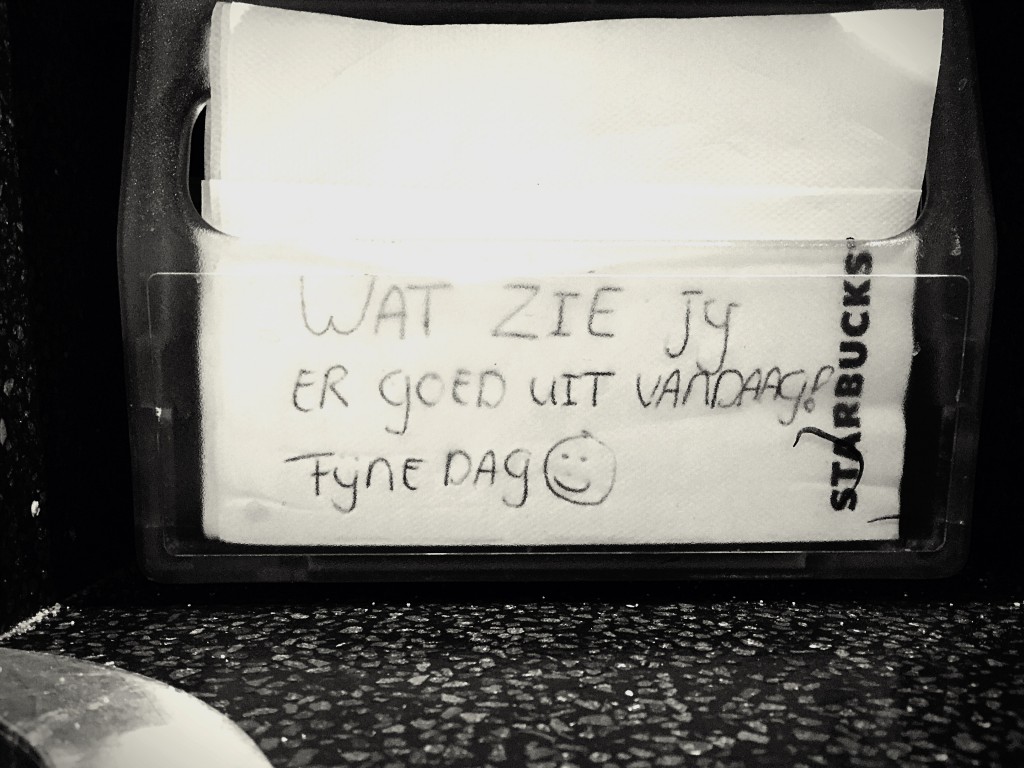 WAT ZIE Jy
ER GOED UIT VANDAAG!?
FyNE DAG
STARBUCKS